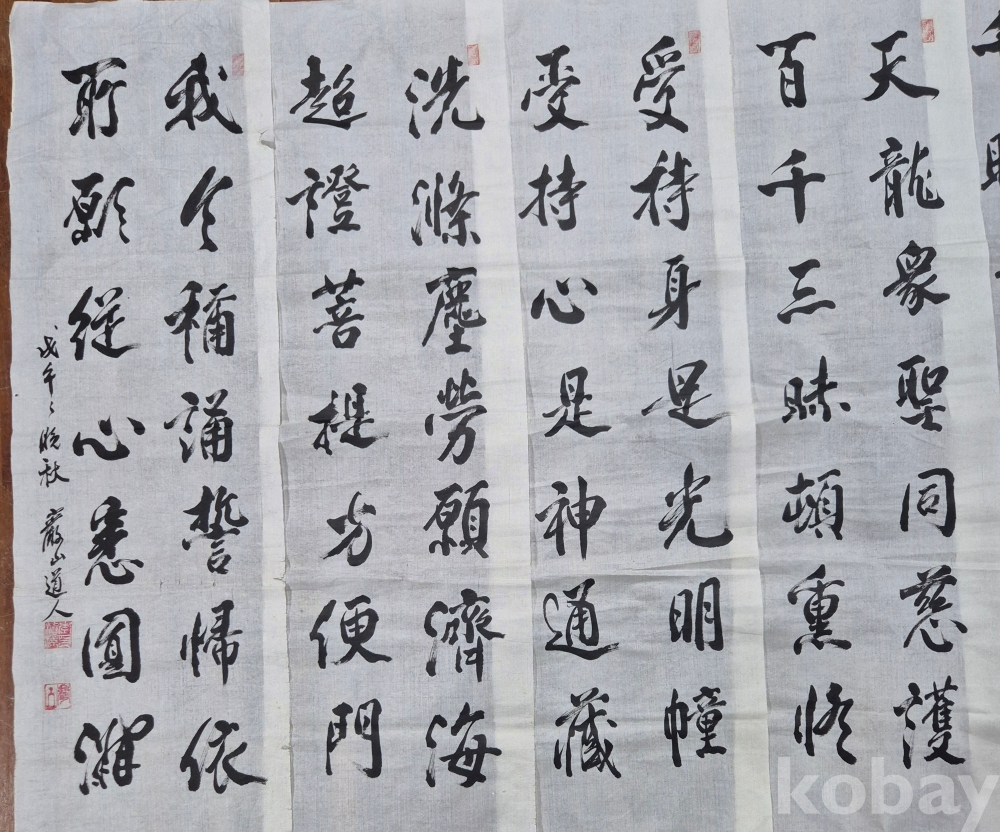 天龍衆聖同慈護
百千三昧頓熏修
受持身是光明幢
受持心是神通藏
洗滌塵勞願濟海
超證菩提方便門
我今稱誦誓歸依
所願從心悉圓滿
戊午之晩秋 巖山道人
kobay